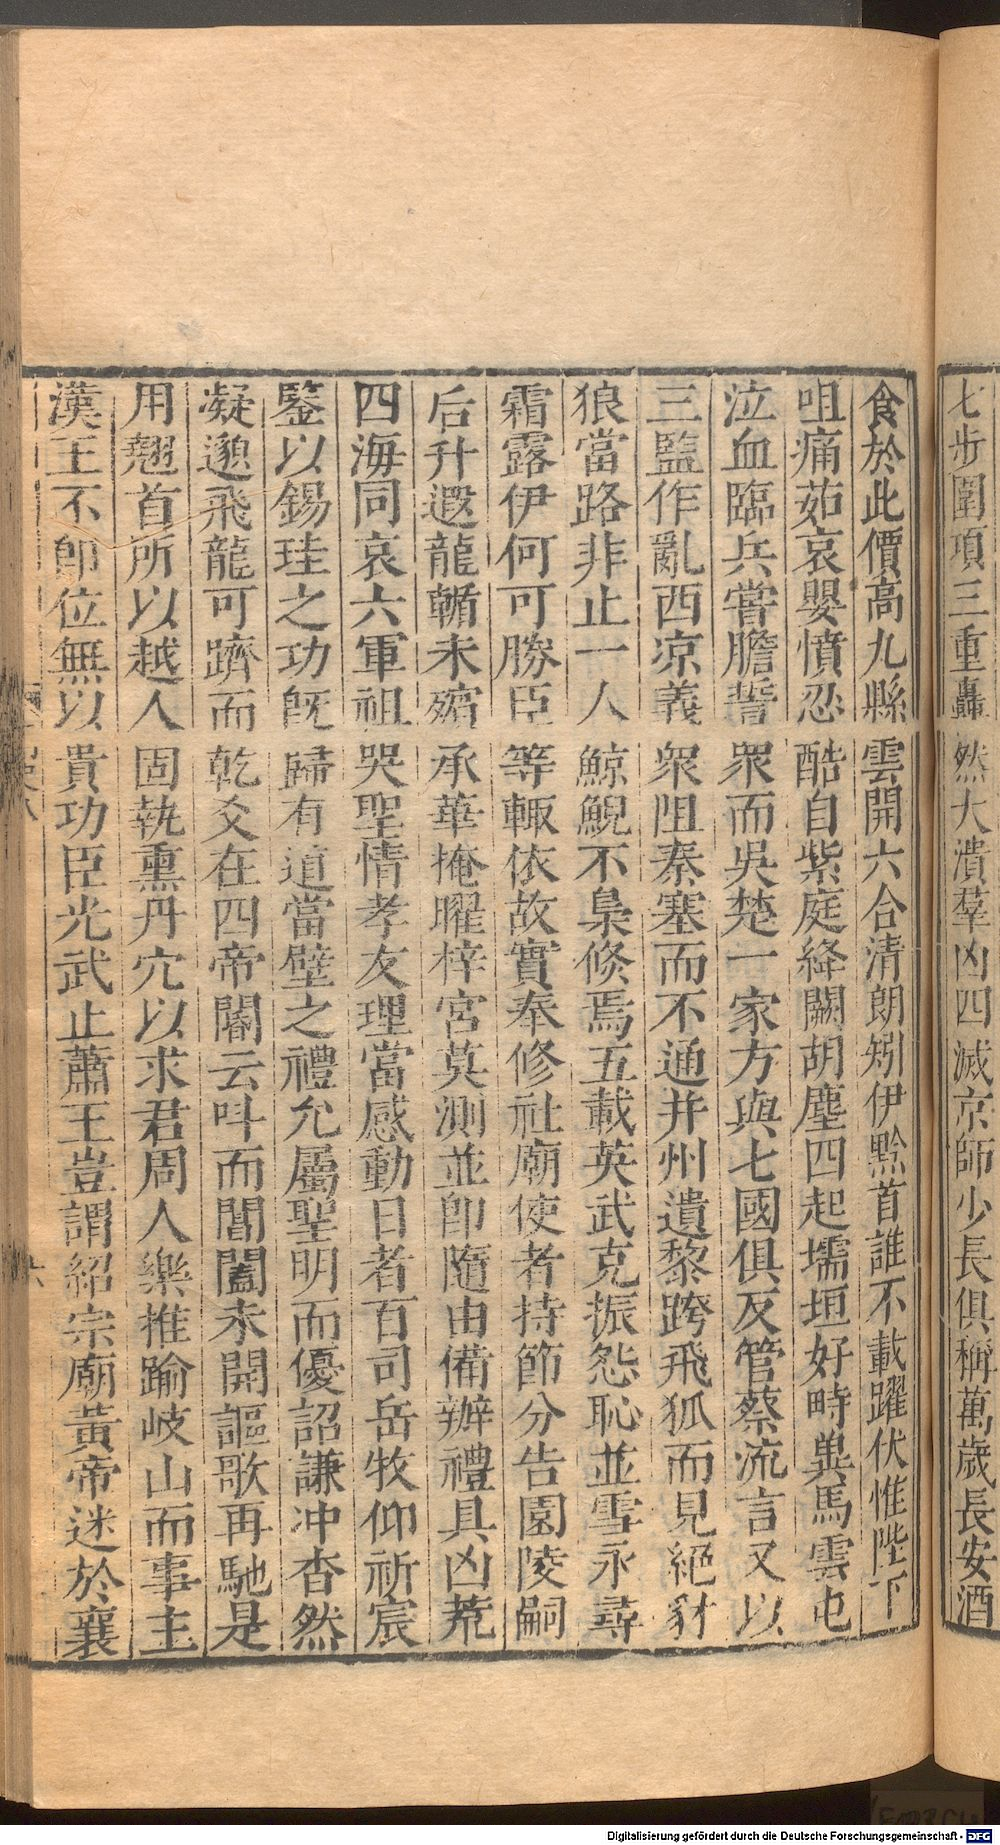 七步圍項三重轟然大潰羣凶四滅京師少長俱稱萬歲長安酒
食於此價高九縣雲開六合清朗矧伊黔首誰不載躍伏惟陛下
咀痛茹哀嬰憤忍酷自紫庭絳闕胡塵四起壖垣好畤兾馬雲屯
泣血臨兵嘗膽誓衆而吳楚一家方與七國俱反管蔡流言又以
三監作亂西凉義衆阻秦塞而不通并州遺黎跨飛狐而見絕豺
狼當路非止一人鯨鯢不梟倐焉五載英武克振怨恥並雪永尋
霜露伊何可勝臣等輙依故實奉修社廟使者持節分告園陵嗣
后升遐龍輴未殯承華掩曜梓宮莫測並卽隨由備辦禮具凶荒
四海同哀六軍袒哭聖情孝友理當感動日者百司岳牧仰祈宸
鑒以錫珪之功旣歸有道當璧之禮允屬聖明而優詔謙冲杳然
凝邈飛龍可躋而乾爻在四帝閽云呌而閶闔未開謳歌再馳是
用翹首所以越人固執熏丹穴以求君周人樂推踰岐山而事主
漢王不卽位無以貴功臣光武止蕭王豈謂紹宗廟黃帝迷於襄
Digitalisierung gefördert durch die Deutsche Forschungsgemeinschaft - DFG